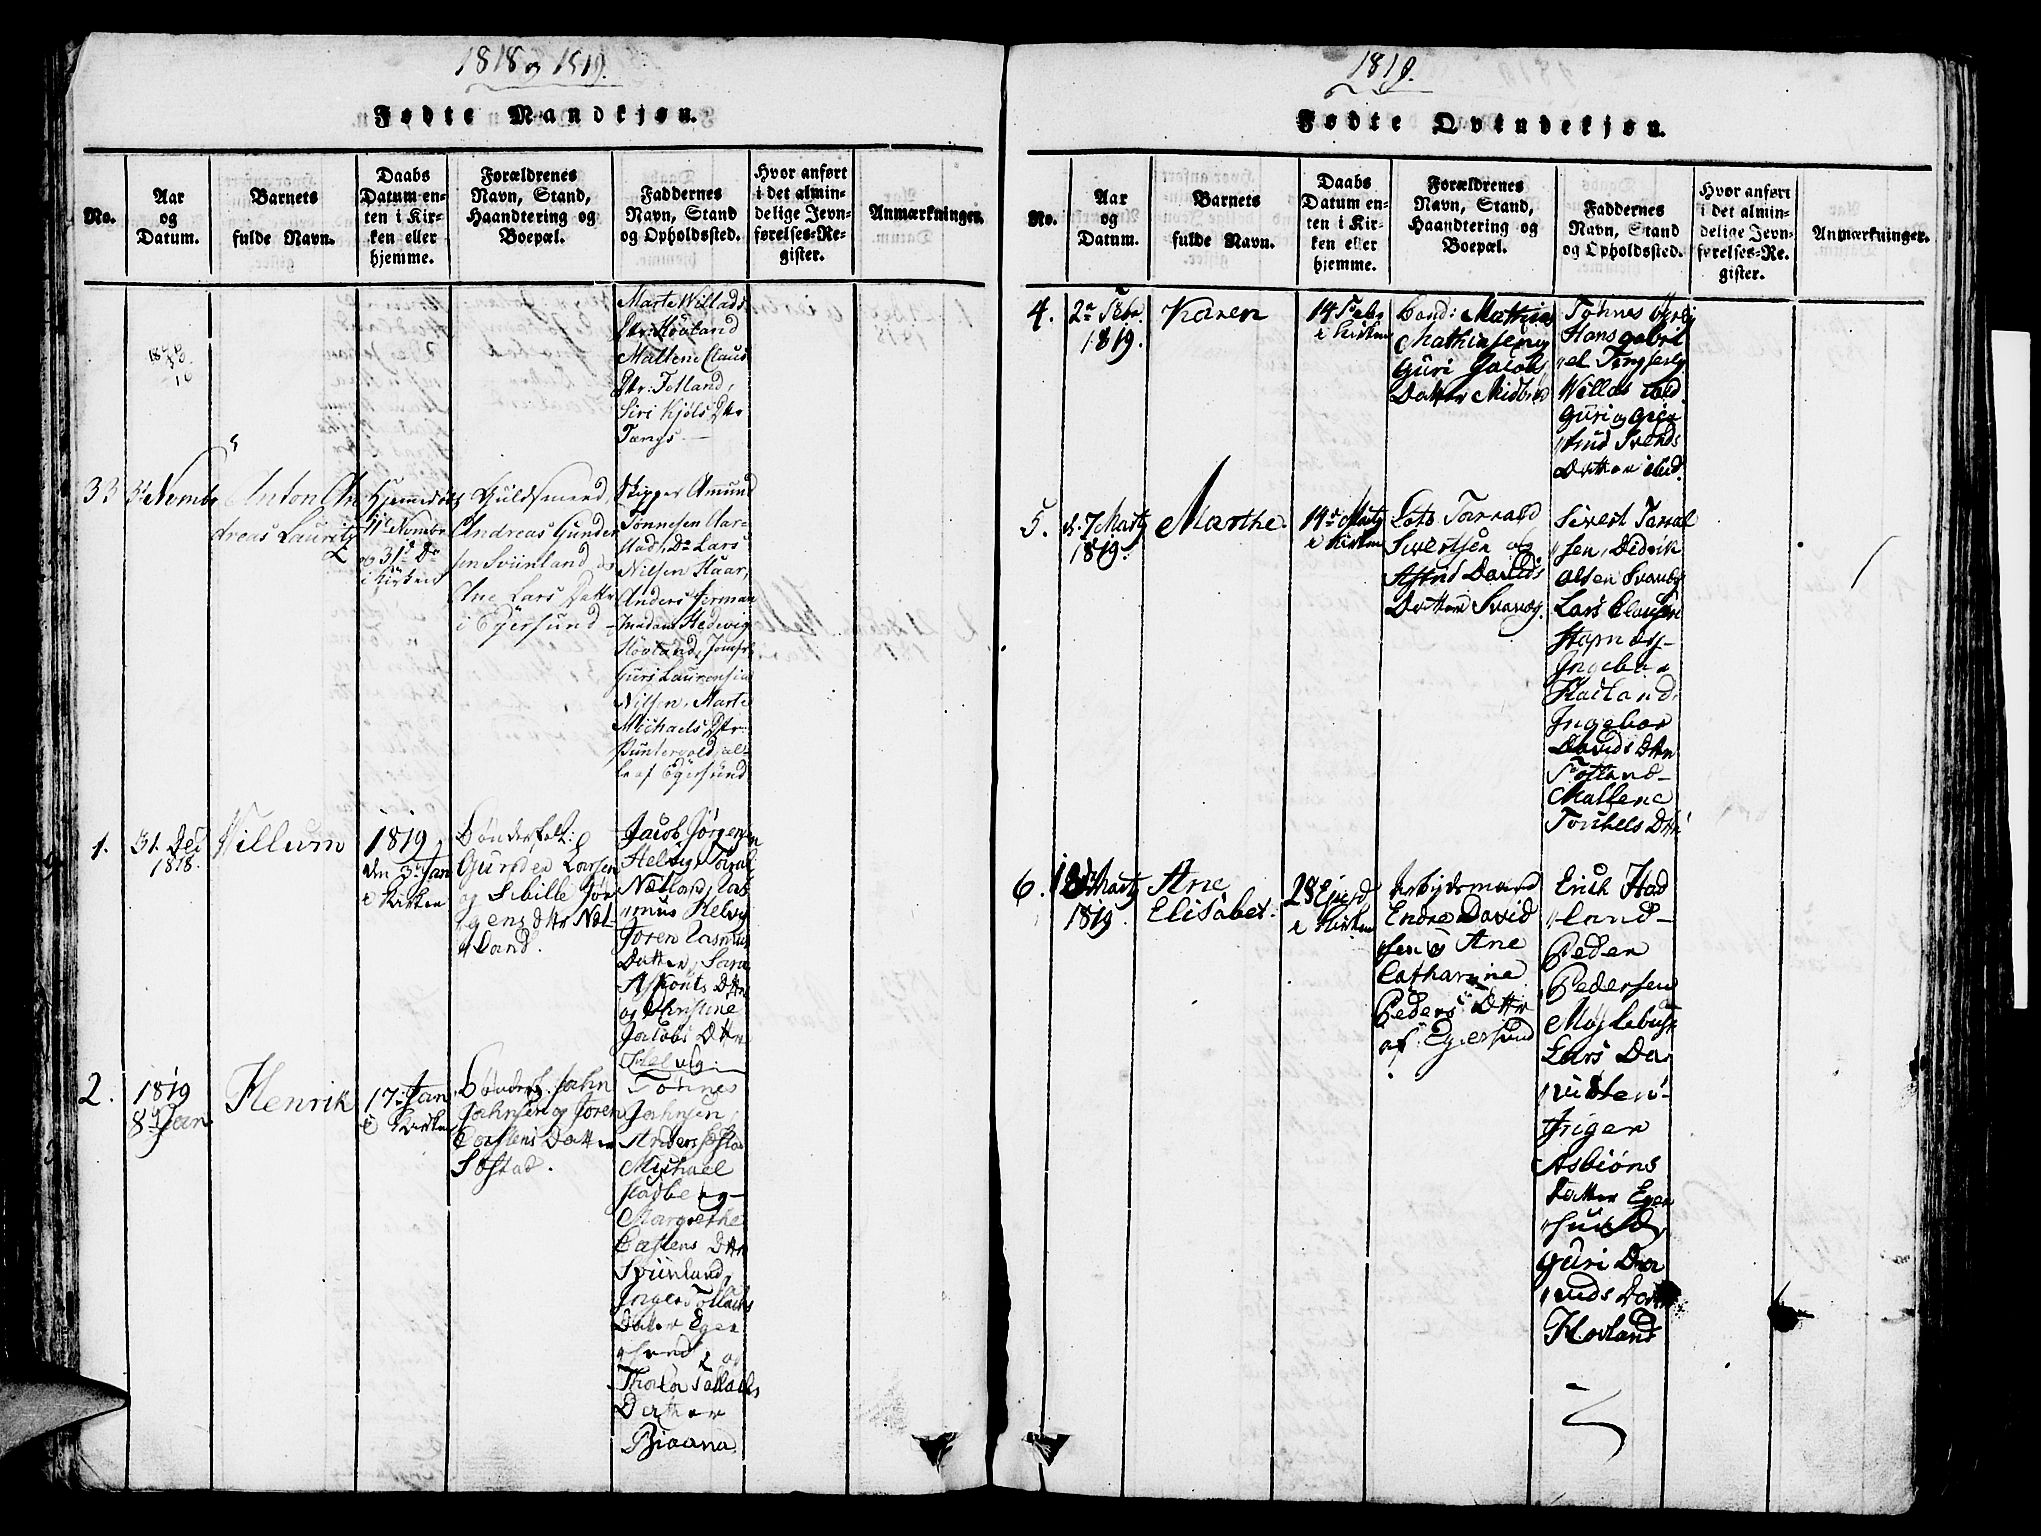 1818 og 1819.
Fødte Mandkjøn.
No.
Aar
og
Datum.
Barnets
fulde Navn.
Daabs
Datum en-
ten i Kir-
ken eller
hjemme.
Forældrenes
Navn, Stand,
Haandtering og
Boepæl.
Faddernes
Navn, Stand
og Opholdssted.
Hvor anført
i det almin-
delige Jevn-
førelses-Re-
gister.
Anmærkninger.
Marte Willads
Dtr: Hovland
Mallene Claus
Dtr: Jolland,
Siri Kjøls Dtr
Tengs
33
Anton An
dreas Lauritz
Hjemmedøbt
11te Novembr
og 31te Dr
i Kirken
Guldsmed
Andreas Gunder
sen Sviinland, og
Ane Lars Dattr
i Egersund
Skipper Amund
Tønnesen Aar-
stad, Do Lars
Nilsen Haar,
Anders Ferman
Madam Hedevig
Hovland, Jomfr
Guri Laurensia
Nilsen, Marte
Michaels Dtr:
Puntervold, al-
le af Egersund
1.
31. Dec
1818.
Villum
1819
den 3. Jan
i Kirken
Bønderfolk:
Gunder Larsen
og Sibille Jør
gens Dttr Næt-
land.
Jacob Jørgensen
Helvig, Toral
Nætland, Ras
mus Helvig
Joren Rasmus
Datter, Sara
Asmonts Dttr
og Christine
Jacobs Dttr
Helvig
2.
1819
8de Jan
Henrik
17. Jan
i Kirken
Bønderf. John
Johnsen og Joren
Carstens Datter
Søstad.
Tønnes
Johnsen,
Anders Søstad
Michael
Stadberg
Margrethe
Castens Dttr
Sviinland,
Inger Tollachs
Datter Eger
sund, og
Thorbor Tollachs
Datter
Biaana
1819.
Fødte Qvindekjøn.
No.
Aar
og
Datum.
Barnets
fulde Navn.
Daabs
Datum en-
ten i Kir-
ken eller
hjemme.
Forældrenes
Navn, Stand,
Haandtering og
Boepæl.
Faddernes
Navn, Stand
og Opholdssted.
Hvor anført
i det almin-
delige Jevn-
førelses-Re-
gister.
Anmærkninger.
4.
2de Febr
1819.
Karen
14 Febr
i Kirken
Bond: Mathias
Mathiasen og
Guri Jacobs
Datter Midbrød
Tønnes
Hans Gabri
el
Willas ibid
Guri og Ger
trud Svends
Datter ibid.
5.
d. 7 Martz
1819.
Marthe
14de Martz
i Kirken
Lots Torvald
Sivertsen og
Astrid Davids
Datter Svanes.
Sivert Torval
sen, Didrik
Olsen Svanes
Lars Clausen
Stapnes
Ingebor
Ingebor
Davids Dttr
Fotland
Mallene
Touchels Dttr
6.
Martz
1819
Ane
Elisabet.
28 Ejusd
i Kirken
Arbeidsmand
Endre David
sen og Ane
Catharine
Peders Dttr
af Egersund
Erich Had
land
Peder
Pedersen
Møglebust
Lars Da
vidsen
Inger
Asbiøns
Datter Eger
sund,
Guri Da
vids Dattr
Hovland